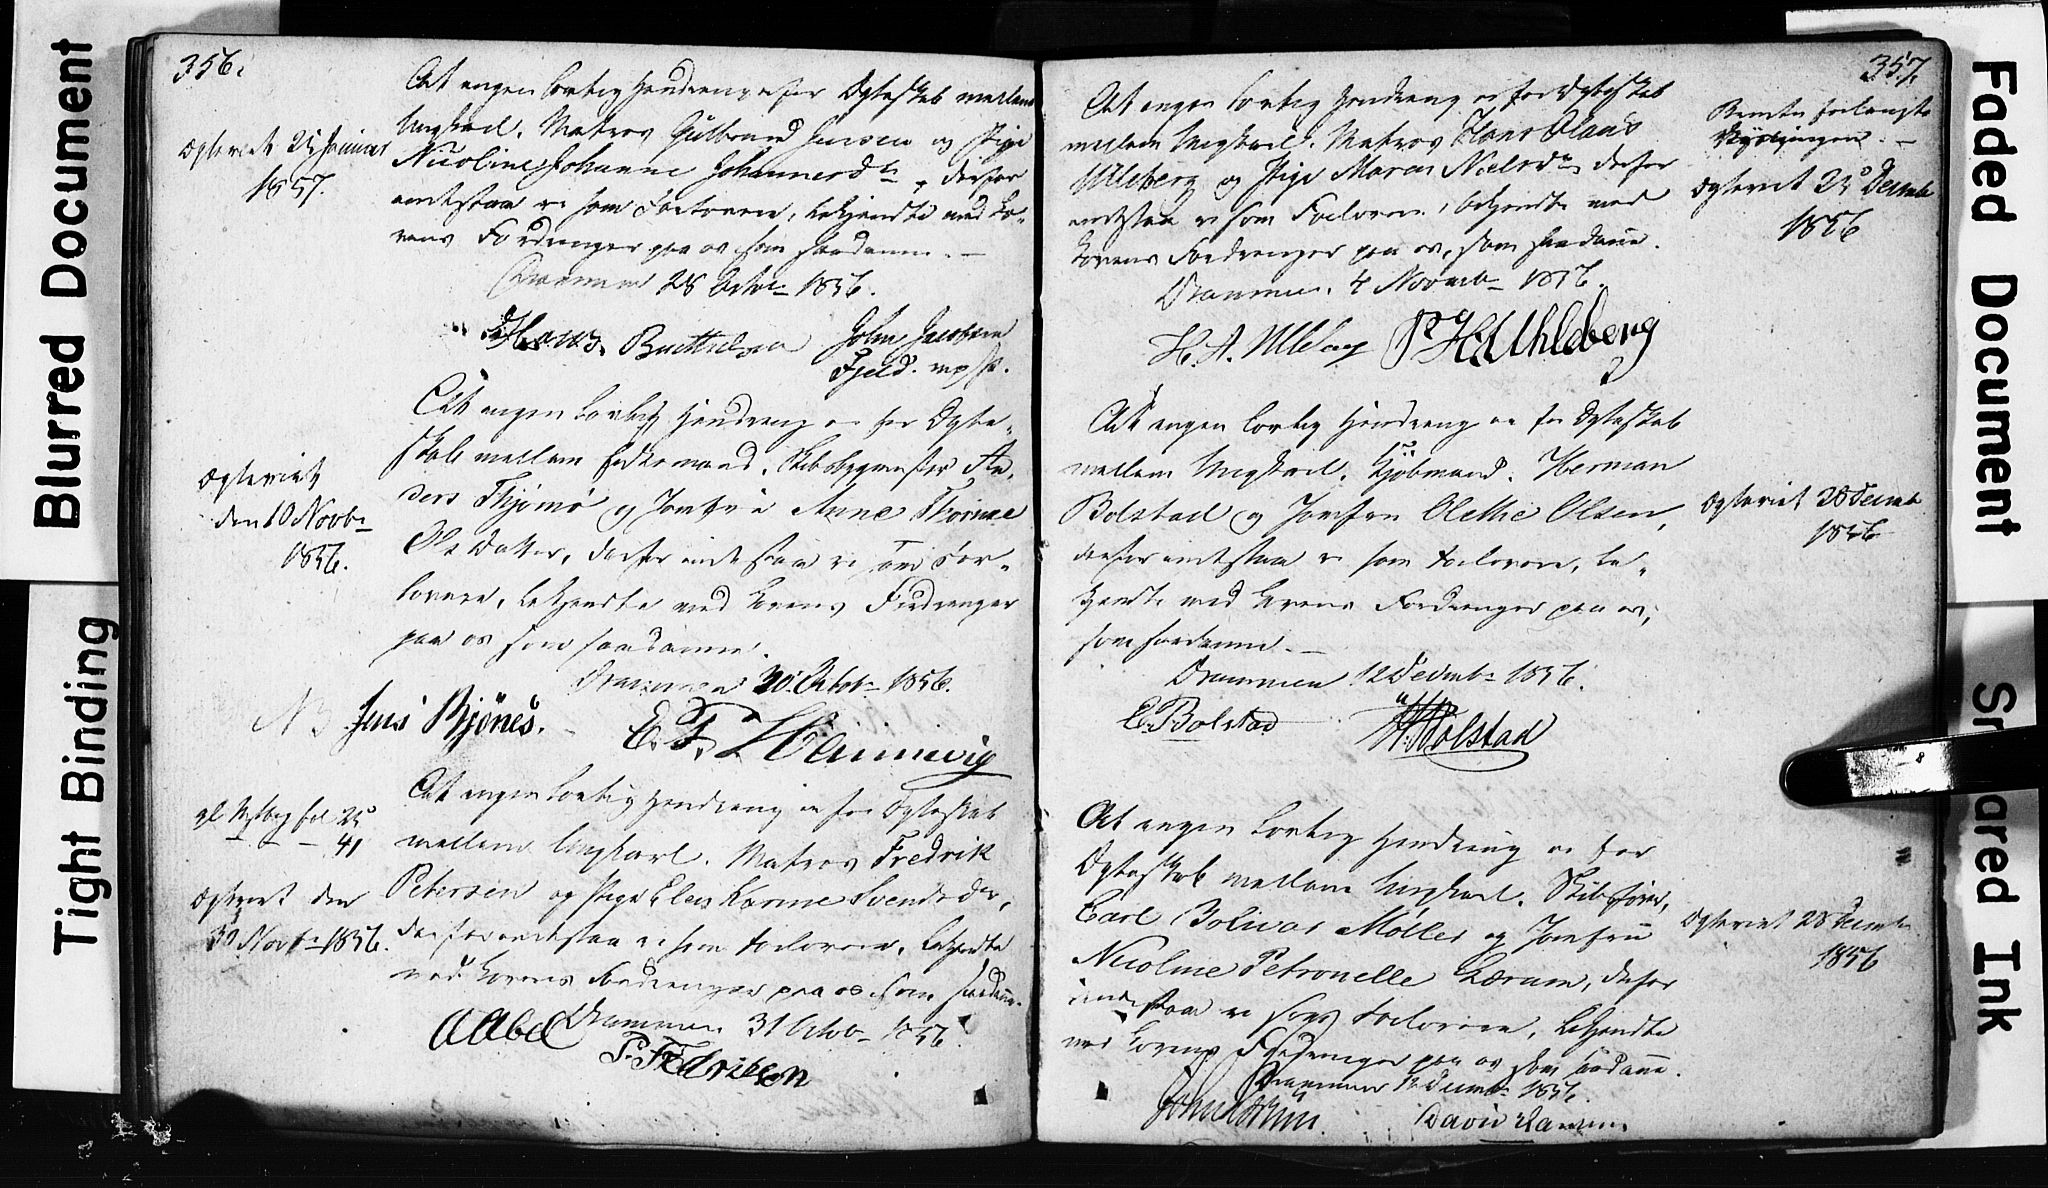 Blurred Document
Tight Binding
356.
Ægteviet 25 Januar
1857.
At ingen lovlig Hindring er for Ægteskab mellem
Ungkarl, Matros Gulbrand Jensen og Pige
Nicoline Johanne Johannesdtr, derfor
indestaa vi som Forlovere, bekjendte med Lo-
vens Fordringer paa os som saadanne. —
Drammen 28 Octbr 1856.
Hans Berthelsen John Jacobsen
Fjeld. mp/p.
Ægteviet
den 10 Novbr
1856.
At ingen lovlig Hindring er for Ægte-
skab mellem Enkemand, Skibsbygmester An-
ders Thjømø og Jomfru Anne Thorine
Ols Datter, derfor indestaa vi som For-
lovere, bekjendte med Lovens Fordringer
paa os som saadanne.
Drammen 30 Octobr 1856.
Jens Bjönes. E. F. Hannevig
25
41
Ægteviet den
30 Novbr 1856.
At ingen lovlig Hindring er for Ægteskab
mellem Ungkarl, Matros Fredrik
Petersen og Pige Elen Karine Svendsdtr,
derfor indestaa vi som Forlovere, bekjendte
med Lovens Fordringer paa os som saadanne.
Drammen 31 Octobr 1856.
A Abel P. Fredriksen
357.
At ingen lovlig Hindring er for Ægteskab
mellem Ungkarl, Matros Hans Olaus
Ulleberg og Pige Maren Nielsdtr, derfor
indestaa vi som Forlovere, bekjendte med
Lovens Fordringer paa os, som saadanne.
Drammen, 4 Novembr 1856.
H. A. Ulleberg P H Uhleberg
Ægteviet 25 Decembr
1856
At ingen lovlig Hindring er for Ægteskab
mellem Ungkarl, Kjøbmand, Herman
Bolstad og Jomfru Olethe Olsen,
derfor indestaa vi som Forlovere, be-
kjendte med Lovens Fordringer paa os,
som saadanne. —
Drammen 12 Decembr 1856.
E. Bolstad H. Bolstad
Ægteviet 28 Decembr
1856
At ingen lovlig Hindring er for
Ægteskab mellem Ungkarl, Skibsfører,
Carl Bolivar Møller og Jomfru
Nicoline Petronelle Lærum, derfor
indestaa vi som Forlovere, bekjendte
med Lovens Fordringer paa os som saadanne.
Drammen Decembr 1856.
David Hansen
Ægteviet 28 Decembr
1856
Faded Document
Smeared Ink